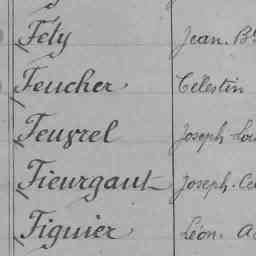 Fély Jean. Bte
Feucher Célestin
Feuvrel Joseph
Fieurgaut Joseph.
Figuier Léon.